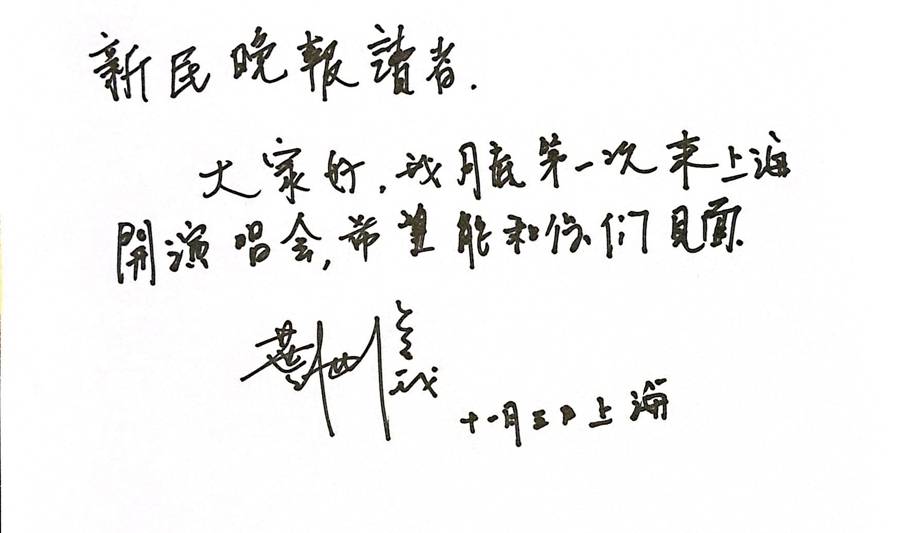 新民晚報讀者.
大家好,我月底第一次來上海
開演唱会,希望能和你们見面.
十一月三日上海